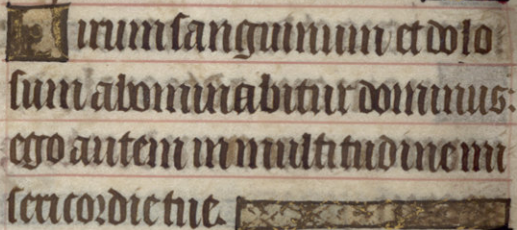 Virum sanguinum et dolo
sum abominabitur dominus:
ego autem in multitudine mi
sericordie tue.